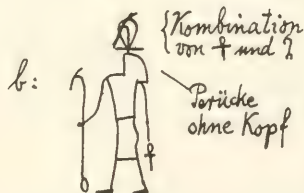 b:
{Kombination
von ☥ und ?
Perücke
ohne Kopf